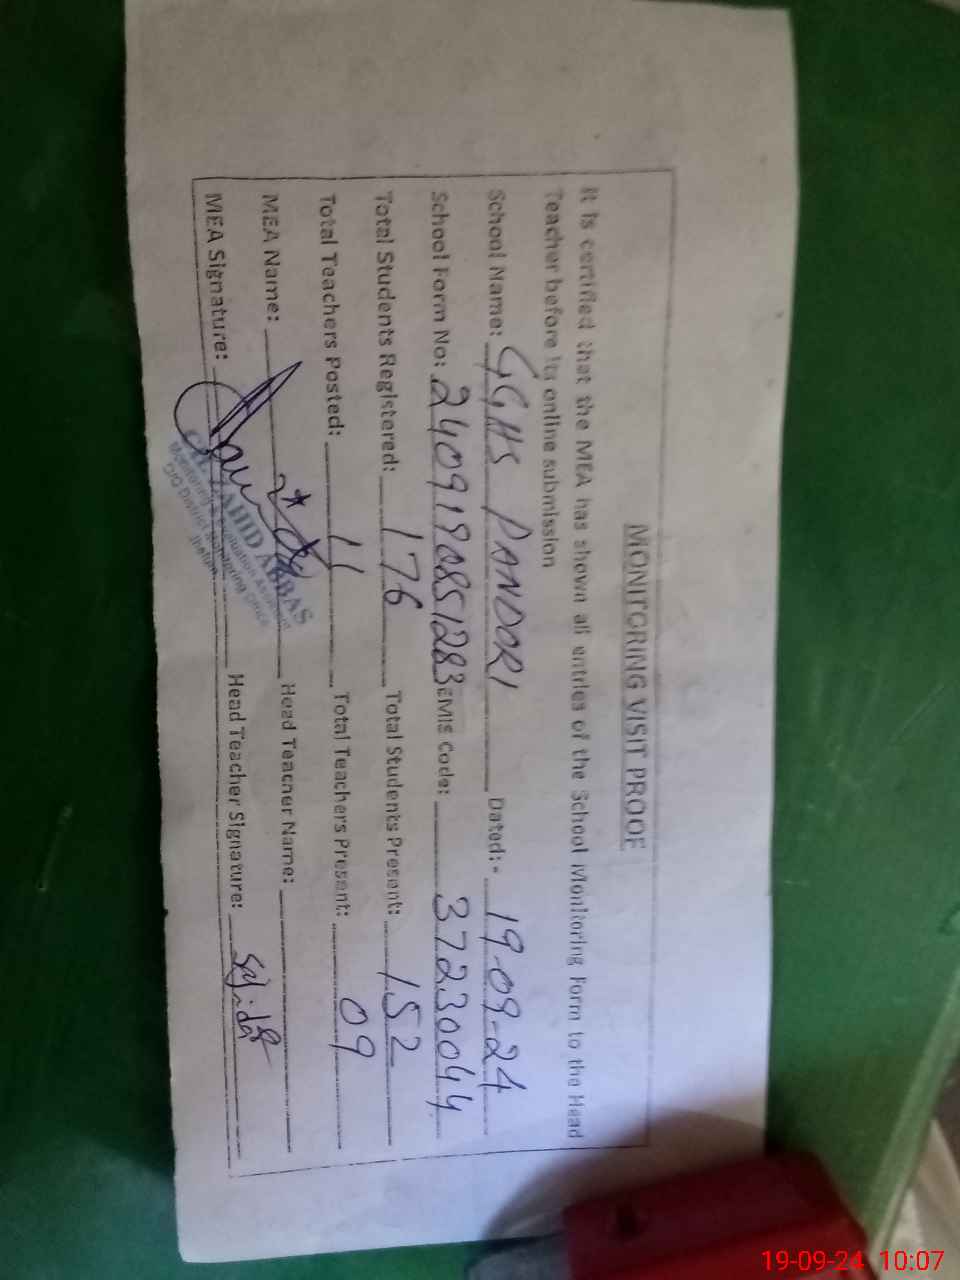 MONITORING VISIT PROOF
It is certified that the MEA has shown all entries of the School Monitoring Form to the Head
Teacher before its online submission
School Name: GGHS PANDORI Dated:- 19-09-24
School Form No: 2409190851283 EMIS Code: 37230044
Total Students Registered: 176 Total Students Present: 152
Total Teachers Posted: 11 Total Teachers Present: 09
MEA Name: Head Teacher Name:
MEA Signature: Head Teacher Signature:
ZAHID ABBAS
Monitoring & Evaluation Assistant
O/O District Monitoring Officer
Jhelum
19-09-24 10:07